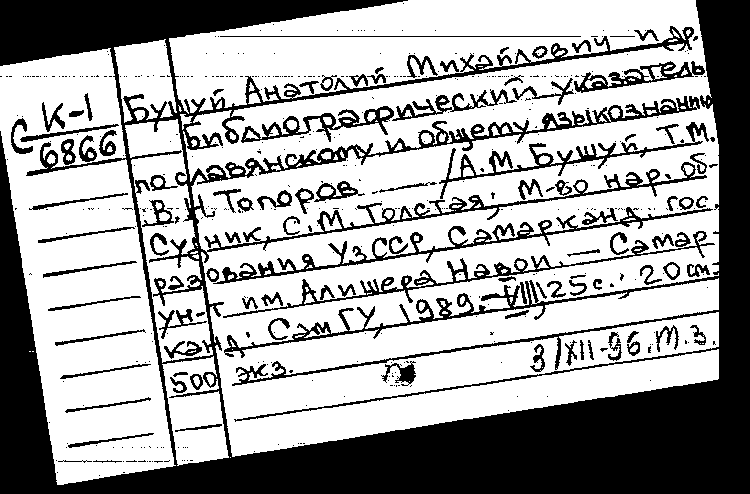 Бушуй, Анатолий Михайлович и др.
К-1
С
6866
Библиографический указатель
по славянскому и общему языкознанию
В. Н. Топоров — / А.М. Бушуй, Т.М.
Судник, С.М. Толстая; М-во нар. об-
разования УзССР, Самарканд. гос.
ун-т им. Алишера Навои. — Самар-
канд: СамГУ, 1989. - VIII, 125 с.; 20 см.
500 экз.
3/XII-96. М.З.